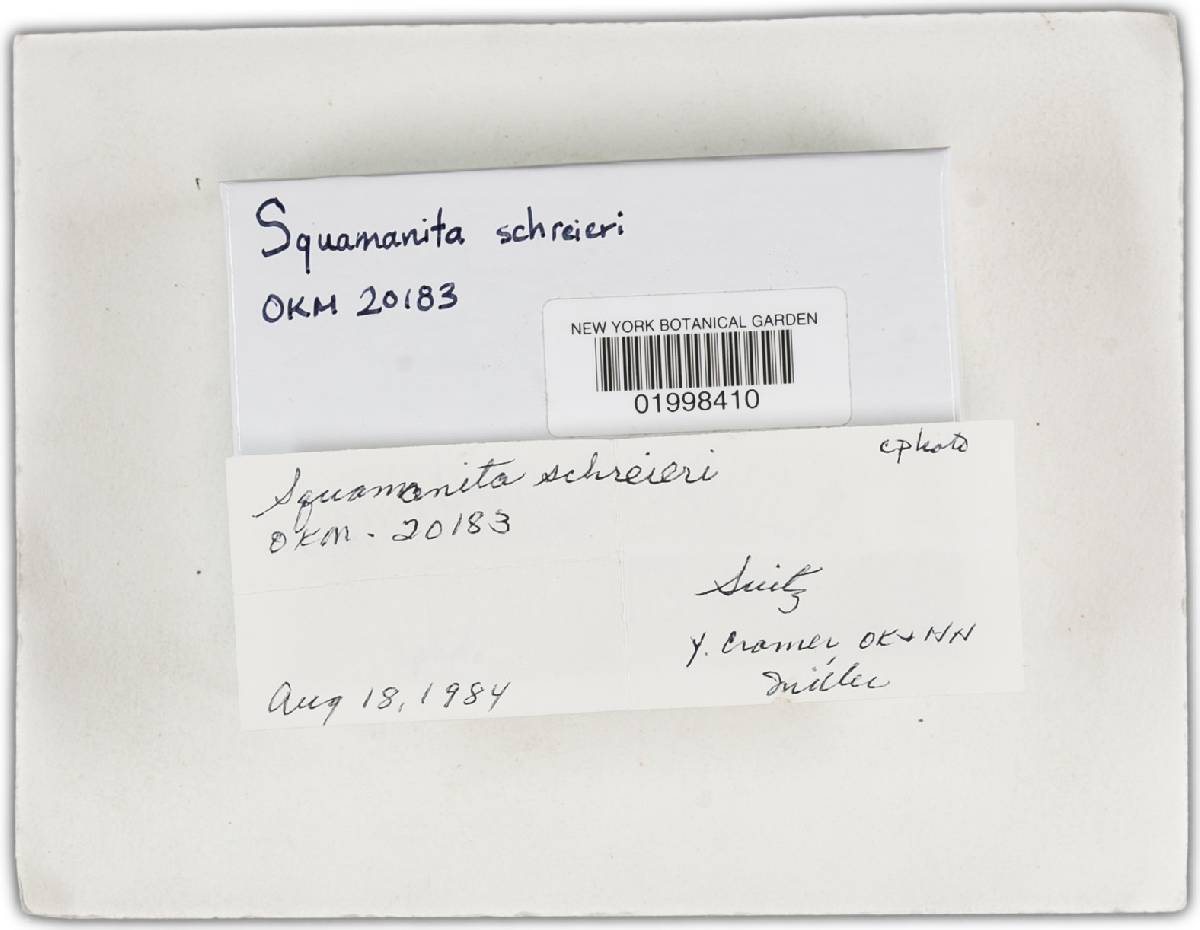 Squamanita schreieri
OKM 20183
NEW YORK BOTANICAL GARDEN
01998410
c photo
Squamanita schreieri
OKM - 20183
Switz
Y. Cramer, OK + HH
Miller
Aug 18, 1984